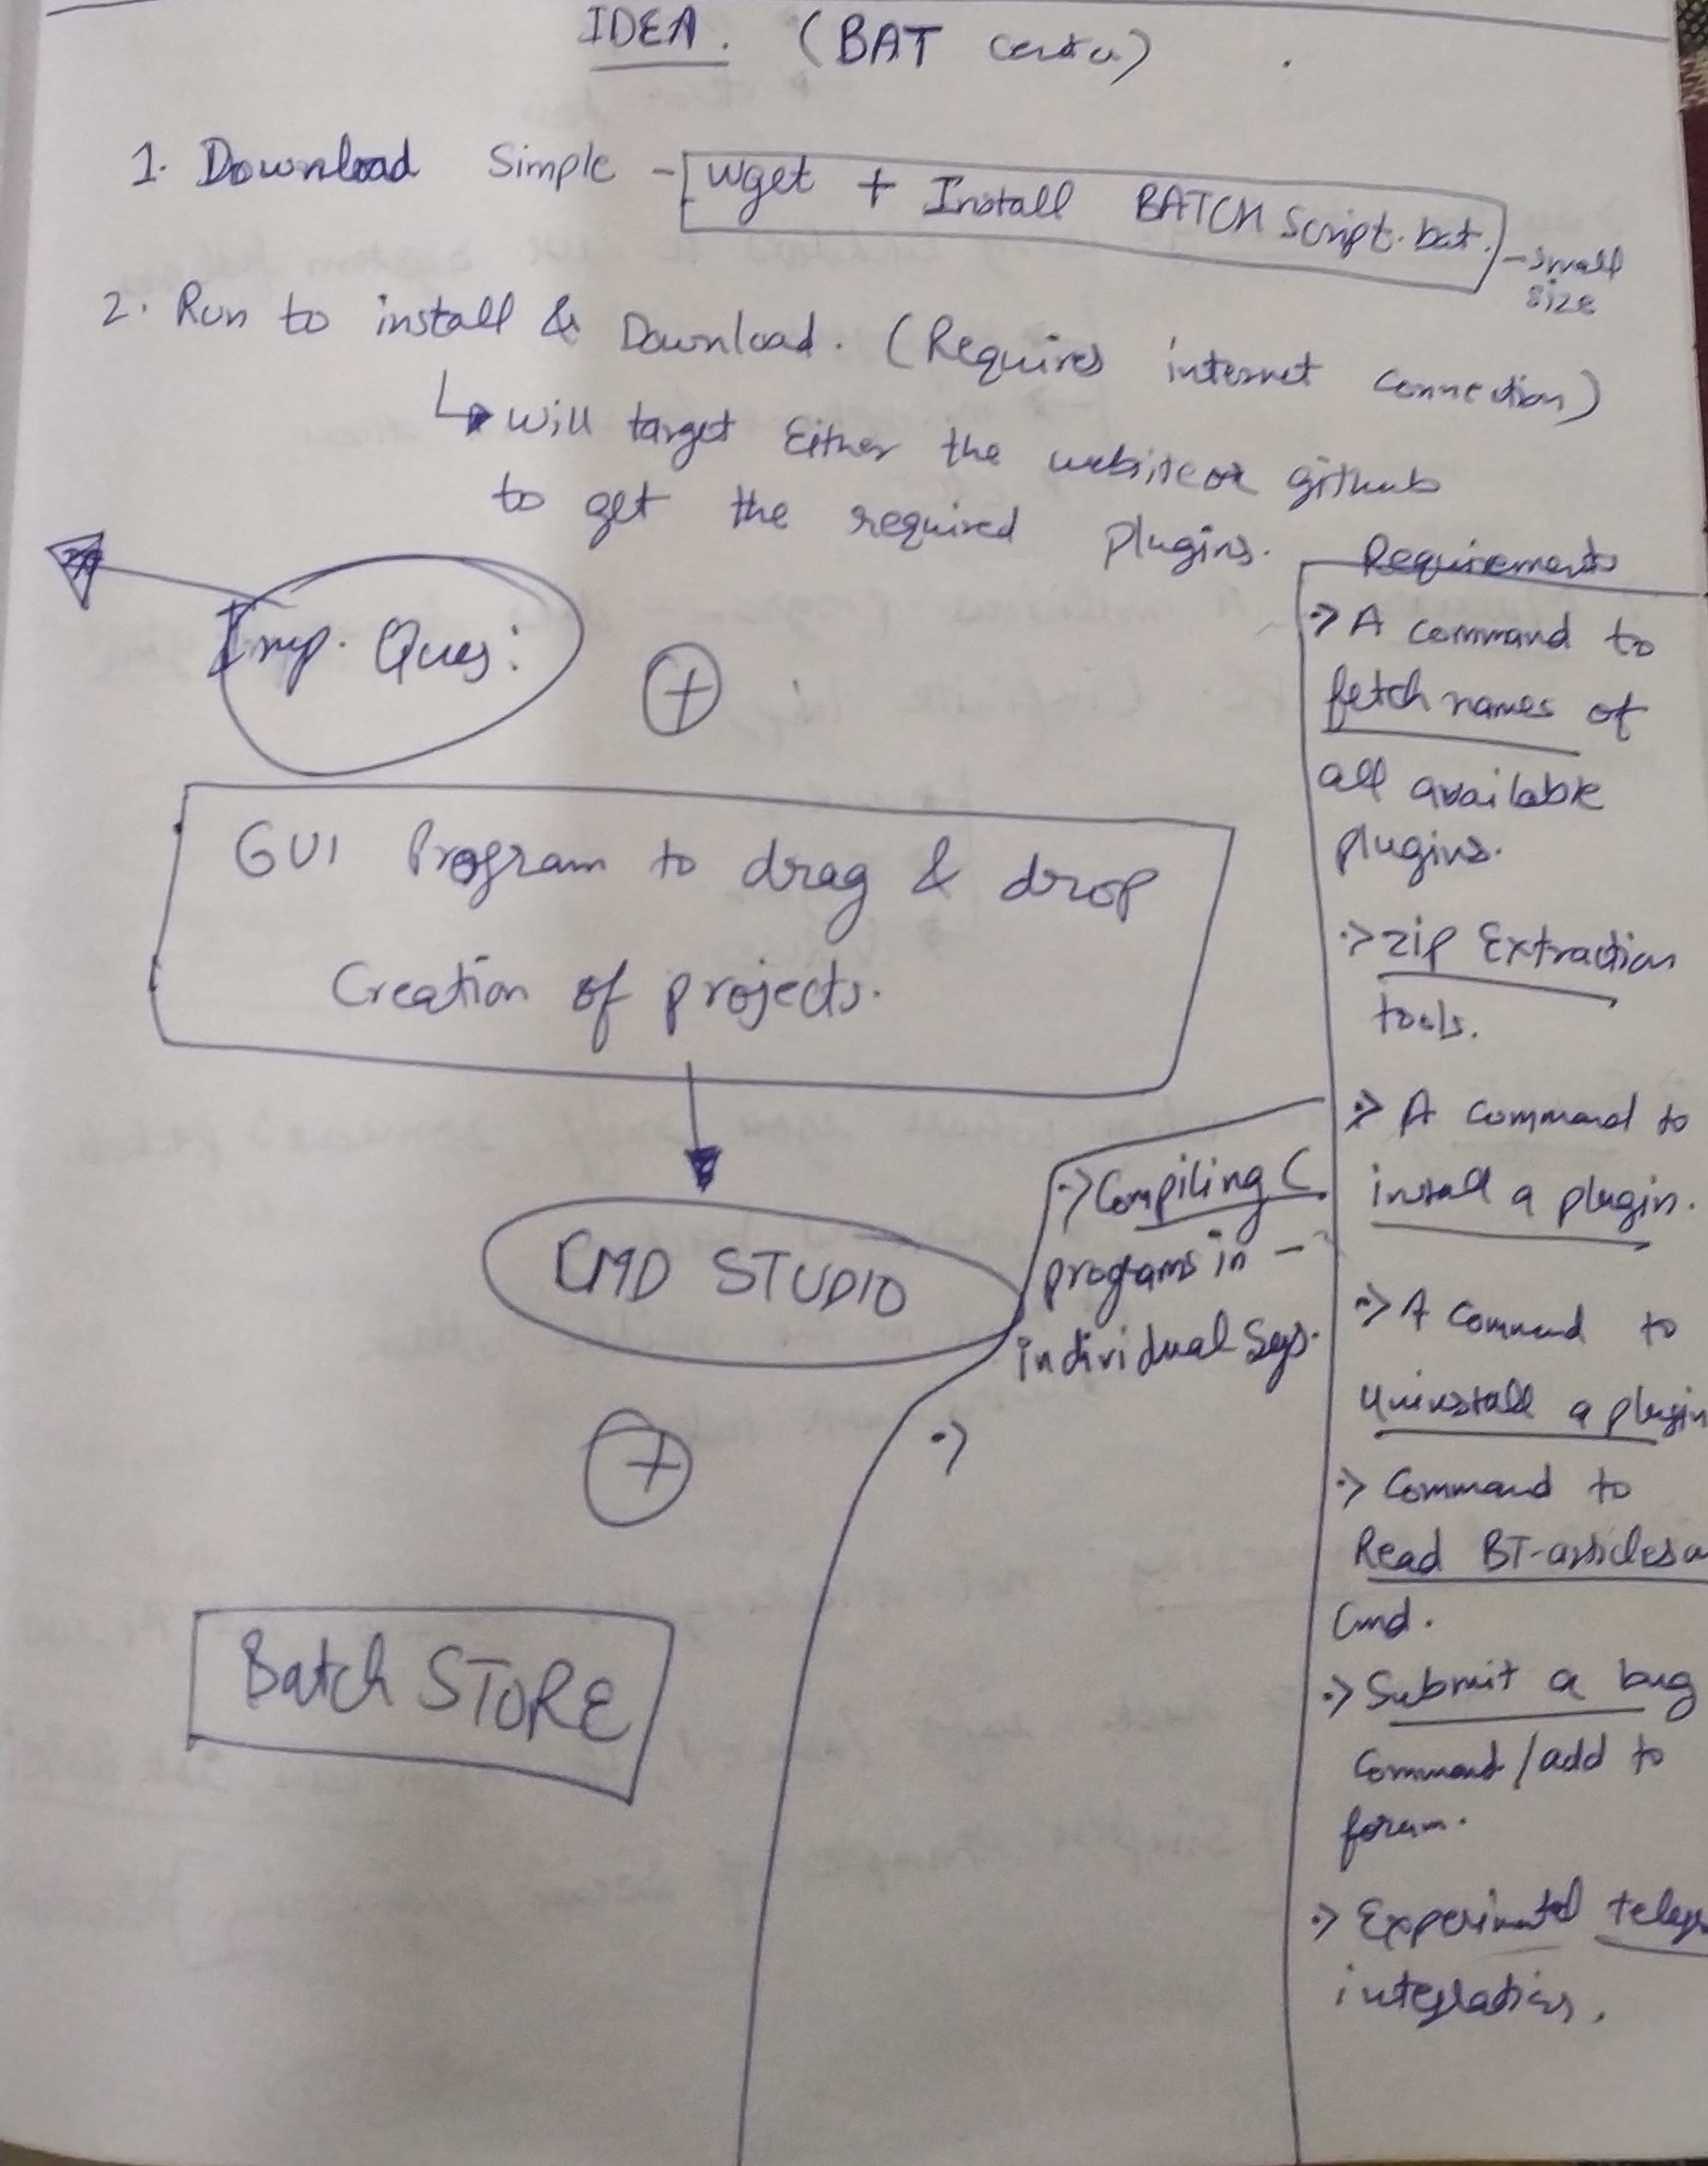 IDEA. (BAT
1. Download Simple - wget + Install BATCH Script.bat. - small
size
2. Run to install & Download. (Requires internet connection)
will target Either the website or github
to get the required plugins.
Imp. Ques:
+
GUI Program to drag & drop
Creation of projects.
CMD STUDIO
+
Batch STORE
:> Compiling C
programs in -
individual Sys.
:>
Requirements
:> A command to
fetch names of
all available
plugins.
:> zip Extraction
tools.
:> A command to
install a plugin.
:> A command to
uninstall a plugin
:> Command to
Read BT-articles
Cmd.
:> Submit a bug
Command/add to
forum.
:> Experimental
integration.